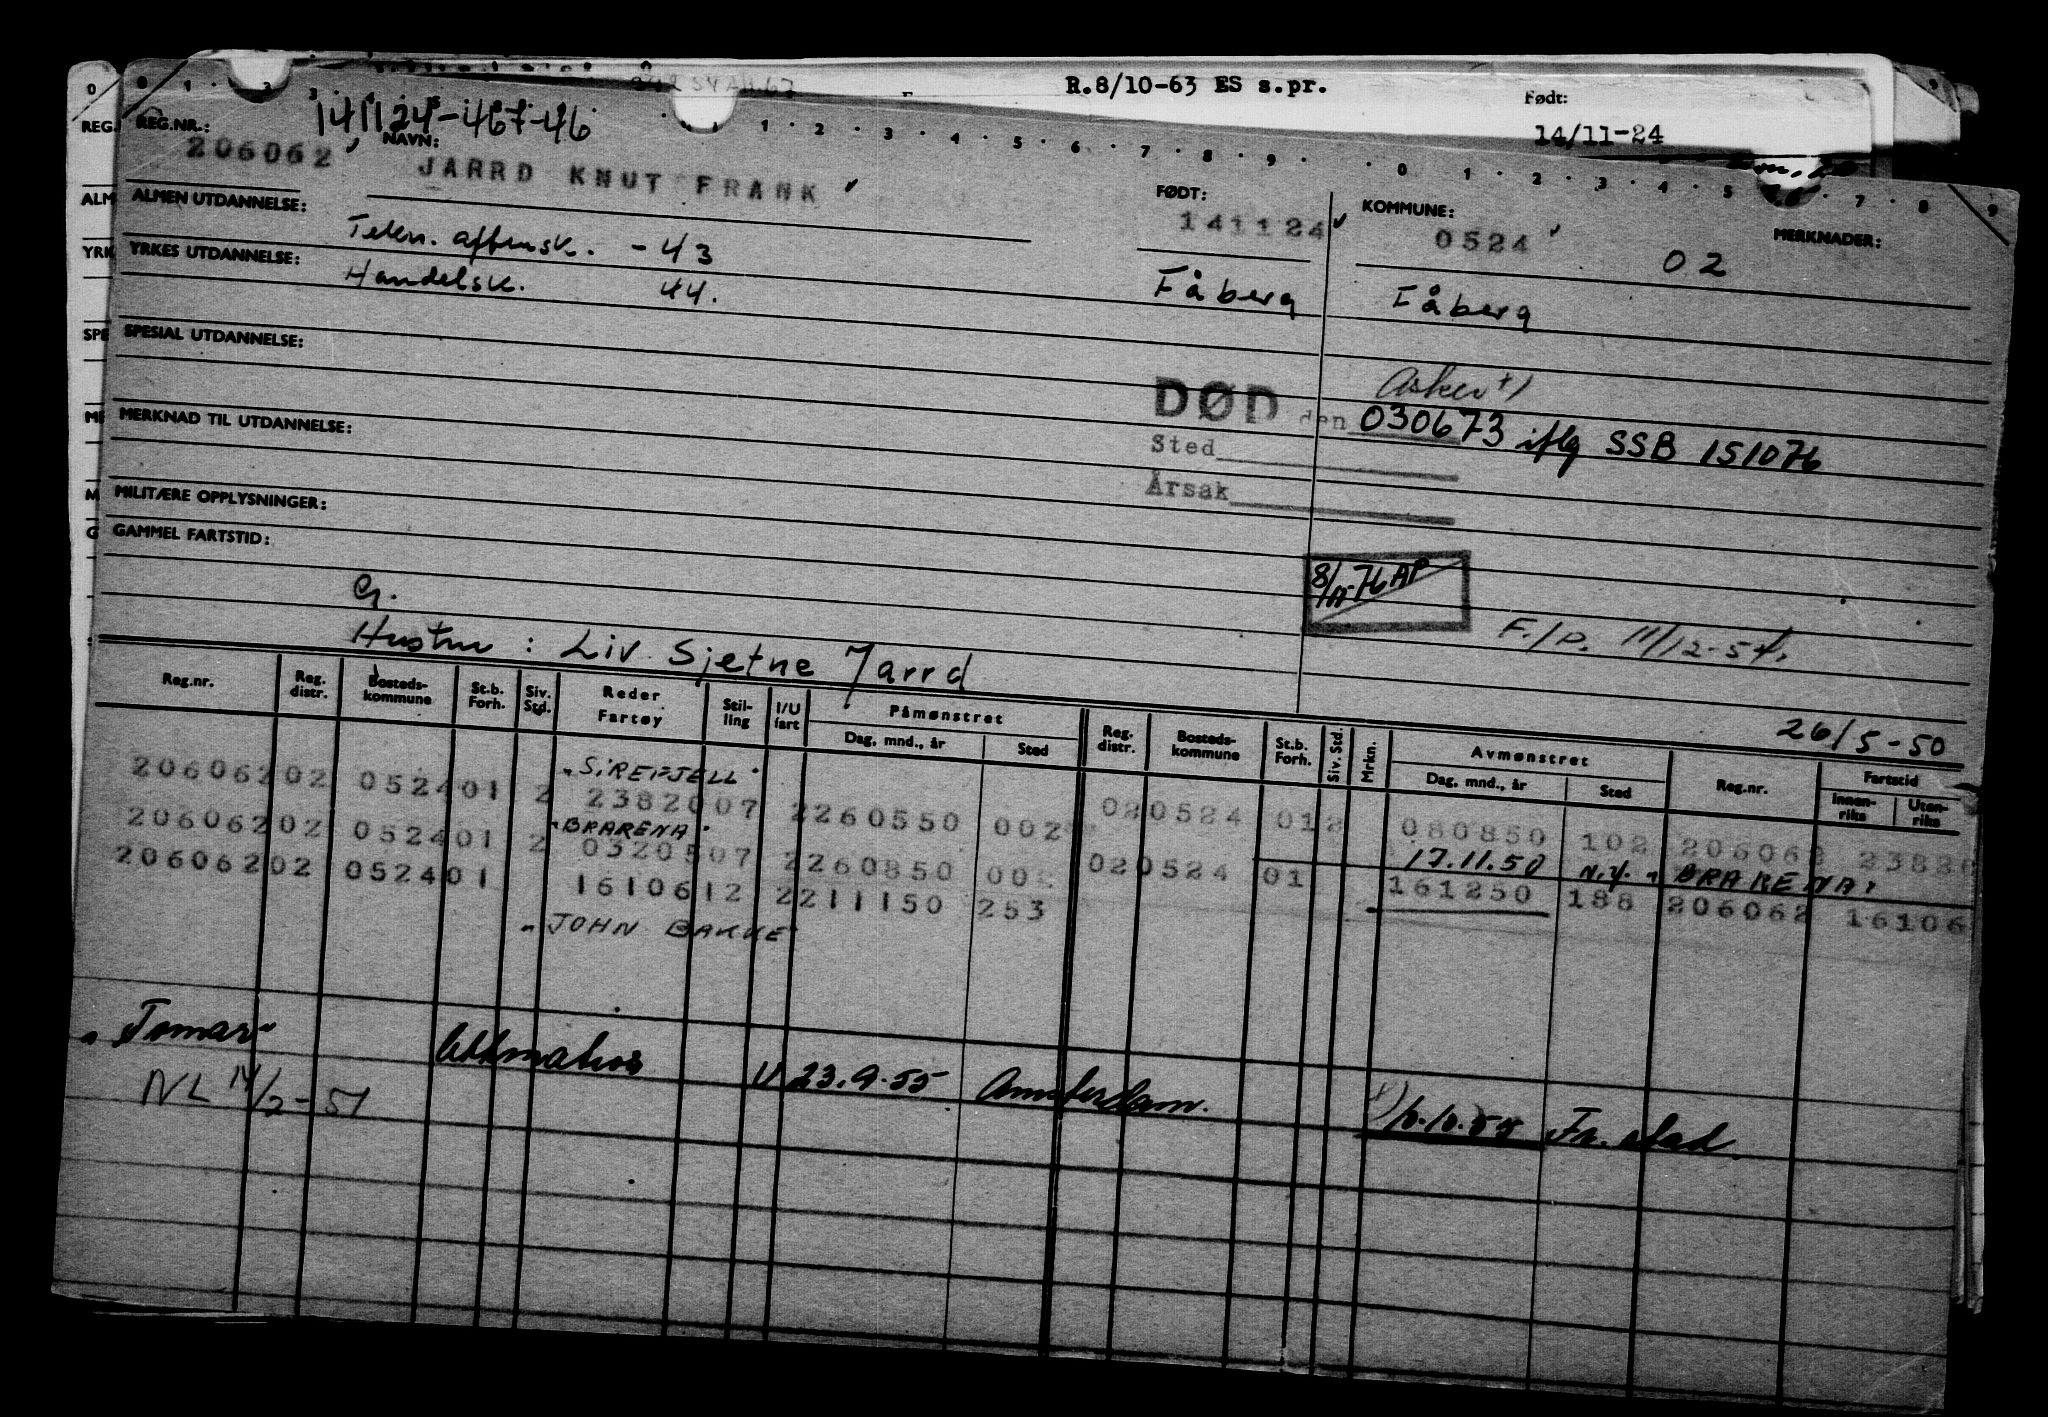 R.8/10-63 ES s.pr.
Født:
14/11-24
141124-467-46
REG.NR.:
206062
NAVN:
JARRD KNUT FRANK
FØDT:
141124
KOMMUNE:
0524
02
MERKNADER:
ALMEN UTDANNELSE:
Tekn. aftensk. - 43
Fåberg
Fåberg
YRKES UTDANNELSE:
Handelsk. 44.
SPESIAL UTDANNELSE:
Asker +)
DØD den 030673 iflg SSB 151076
Sted
Årsak
MERKNAD TIL UTDANNELSE:
MILITÆRE OPPLYSNINGER:
GAMMEL FARTSTID:
8/11-76 AP
F./D. 11/12-54.
G.
Hustru : Liv Sjetne Jarrd
26/5-50
Reg.nr. Reg. distr. Bosteds-kommune St.b. Forh. Siv. Std. Reder Fartøy Stil-ling I/U fart Påmønstret Dag, mnd., år Sted Reg. distr. Bosteds-kommune St.b. Forh. Siv. Std. Mrkn. Avmønstret Dag, mnd., år Sted Reg.nr. Fartstid Innen-riks Uten-riks
"SIREFJELL"
206062 02 0524 01 2 2382007 2 260550 002 02 0524 01 2 080850 102 206062 2382
"BRARENA"
206062 02 0524 01 2 0320507 2 260850 002 02 0524 01 17.11.50 N.Y. "BRARENA"
206062 02 0524 01 1610612 2 211150 253 161250 188 206062 16106
"JOHN BAKKE"
"Tomar" U 23.9.55 Amsterdam. 10.10.55 Fr.stad.
NL 14/2-51